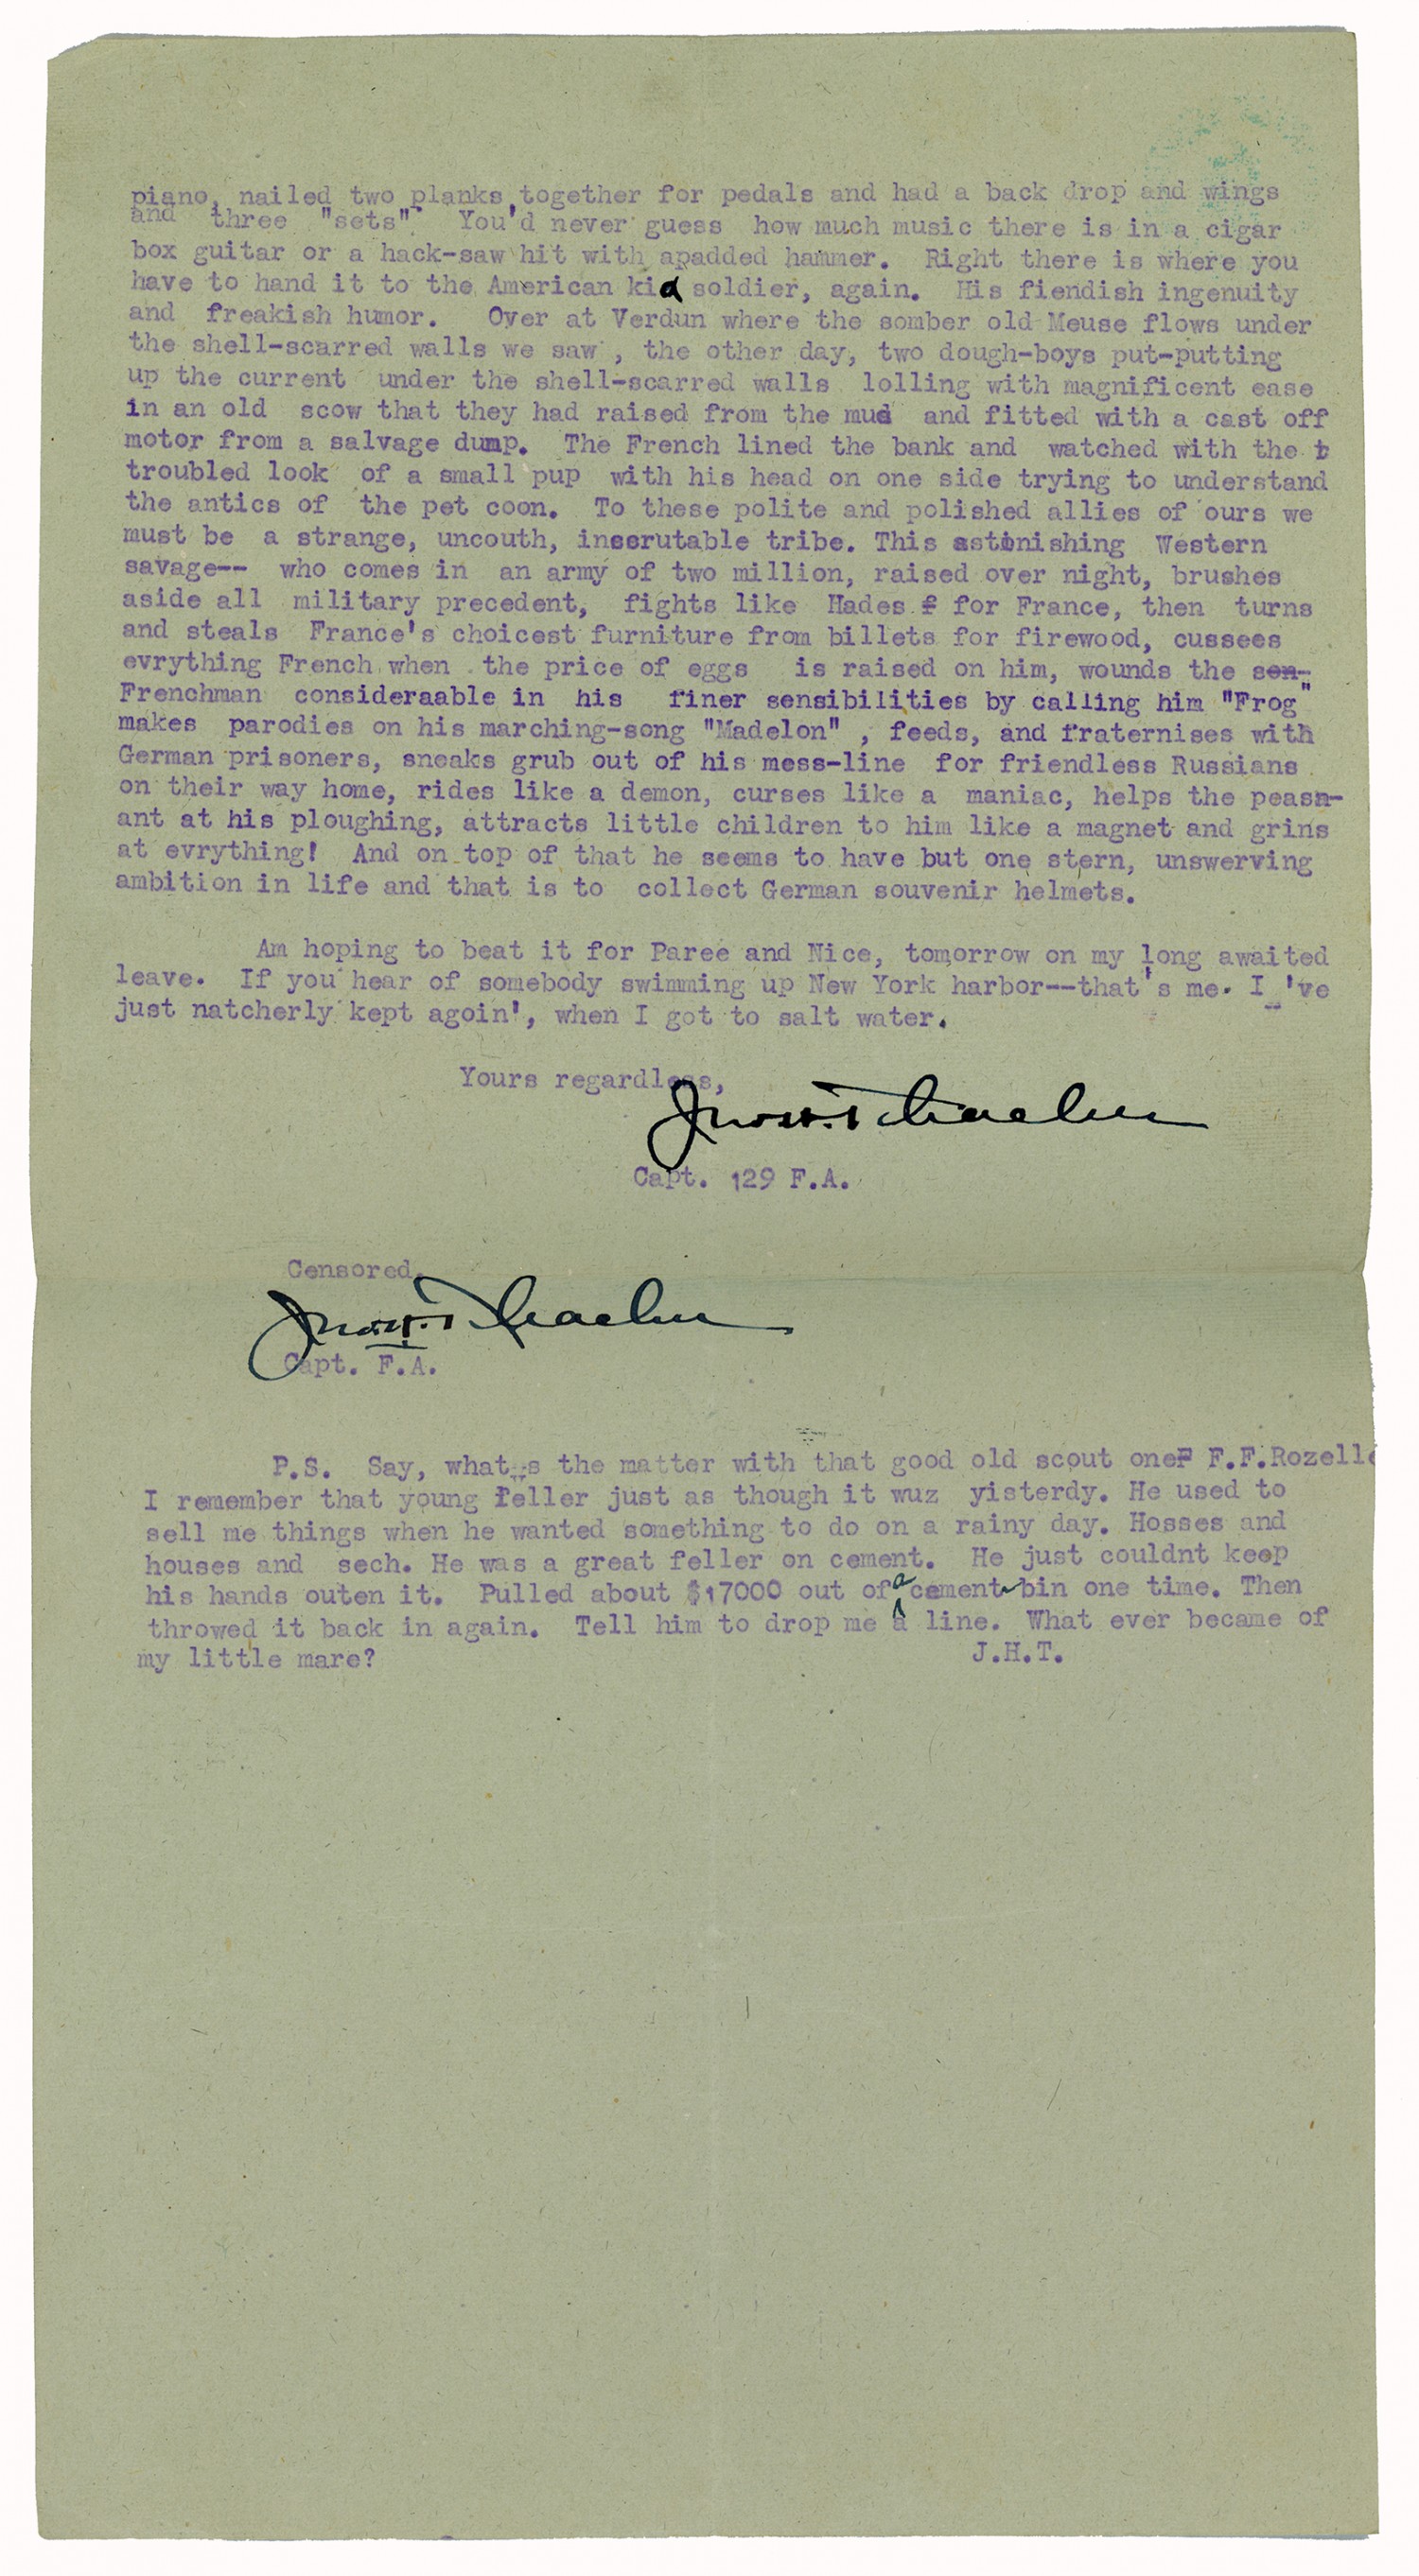 piano, nailed two planks together for pedals and had a back drop and wings
and three "sets". You'd never guess how much music there is in a cigar
box guitar or a hack-saw hit with apadded hammer. Right there is where you
have to hand it to the American kid soldier, again. His fiendish ingenuity
and freakish humor. Over at Verdun where the somber old Meuse flows under
the shell-scarred walls we saw , the other day, two dough-boys put-putting
up the current under the shell-scarred walls lolling with magnificent ease
in an old scow that they had raised from the mud and fitted with a cast off
motor from a salvage dump. The French lined the bank and watched with the t
troubled look of a small pup with his head on one side trying to understand
the antics of the pet coon. To these polite and polished allies of ours we
must be a strange, uncouth, inscrutable tribe. This astonishing Western
savage-- who comes in an army of two million, raised over night, brushes
aside all military precedent, fights like Hades f for France, then turns
and steals France's choicest furniture from billets for firewood, cussees
evrything French when the price of eggs is raised on him, wounds the sen-
Frenchman consideraable in his finer sensibilities by calling him "Frog"
makes parodies on his marching-song "Madelon" , feeds, and fraternises with
German prisoners, sneaks grub out of his mess-line for friendless Russians
on their way home, rides like a demon, curses like a maniac, helps the peasn-
ant at his ploughing, attracts little children to him like a magnet and grins
at evrything! And on top of that he seems to have but one stern, unswerving
ambition in life and that is to collect German souvenir helmets.
Am hoping to beat it for Paree and Nice, tomorrow on my long awaited
leave. If you hear of somebody swimming up New York harbor--that's me. I 've
just natcherly kept agoin', when I got to salt water.
Yours regardless,
Jno. H. Thacher
Capt. 129 F.A.
Censored,
Jno. H. Thacher
Capt. F.A.
P.S. Say, what's the matter with that good old scout one F.F.Rozelle
I remember that young feller just as though it wuz yisterdy. He used to
sell me things when he wanted something to do on a rainy day. Hosses and
houses and sech. He was a great feller on cement. He just couldnt keep
his hands outen it. Pulled about $17000 out of a cement bin one time. Then
throwed it back in again. Tell him to drop me a line. What ever became of
my little mare? J.H.T.